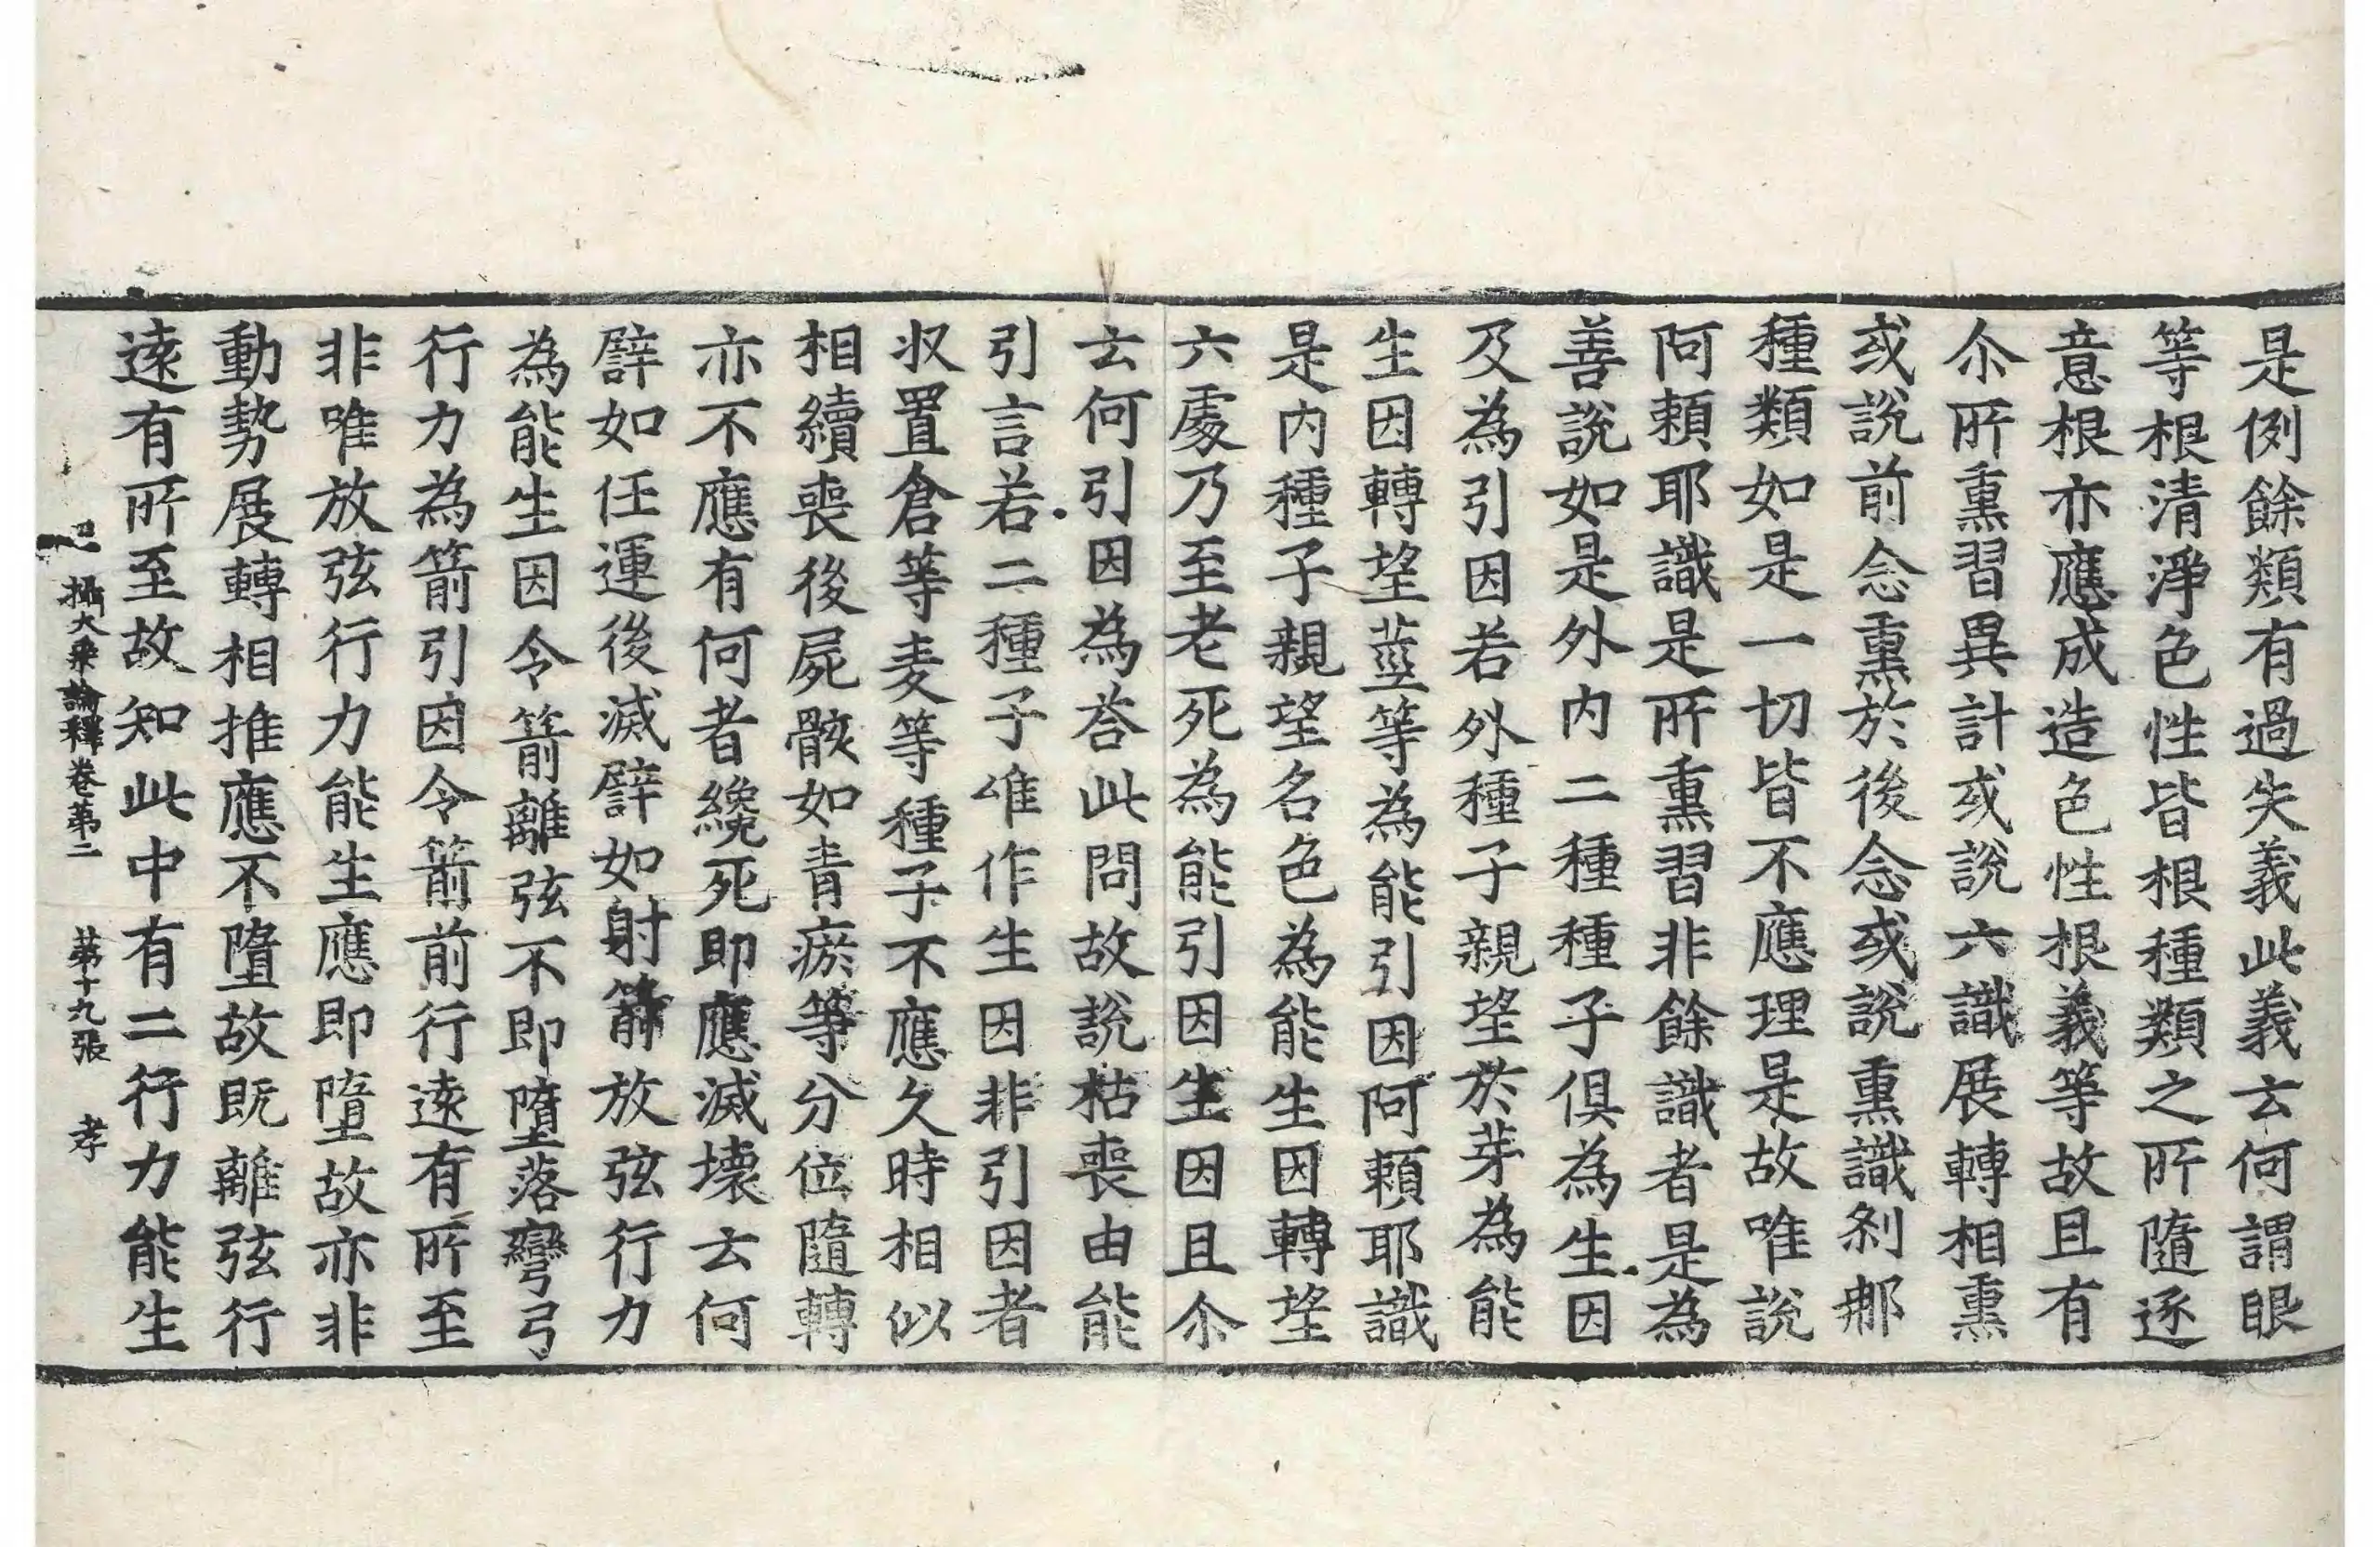 是例餘類有過失義此義云何謂眼
等根清淨色性皆根種類之所隨逐
意根亦應成造色性根義等故且有
尒所熏習異計或說六識展轉相熏
或說前念熏於後念或說熏識剎那
種類如是一切皆不應理是故唯說
阿頼耶識是所熏習非餘識者是為
善說如是外內二種種子俱為生因
及為引因若外種子親望於芽為能
生因轉望莖等為能引因阿頼耶識
是內種子親望名色為能生因轉望
六處乃至老死為能引因生因且尒
云何引因為荅此問故說枯喪由能
引言若二種子唯作生因非引因者
収置倉等麦等種子不應久時相似
相續喪後屍骸如青瘀等分位隨轉
亦不應有何者纔死即應滅壞云何
譬如任運後滅譬如射箭放弦行力
為能生因令箭離弦不即墮落彎弓
行力為箭引因令箭前行遠有所至
非唯放弦行力能生應即墮故亦非
動勢展轉相推應不墮故既離弦行
遠有所至故知此中有二行力能生
攝大乘論釋卷第二 第十九張 孝